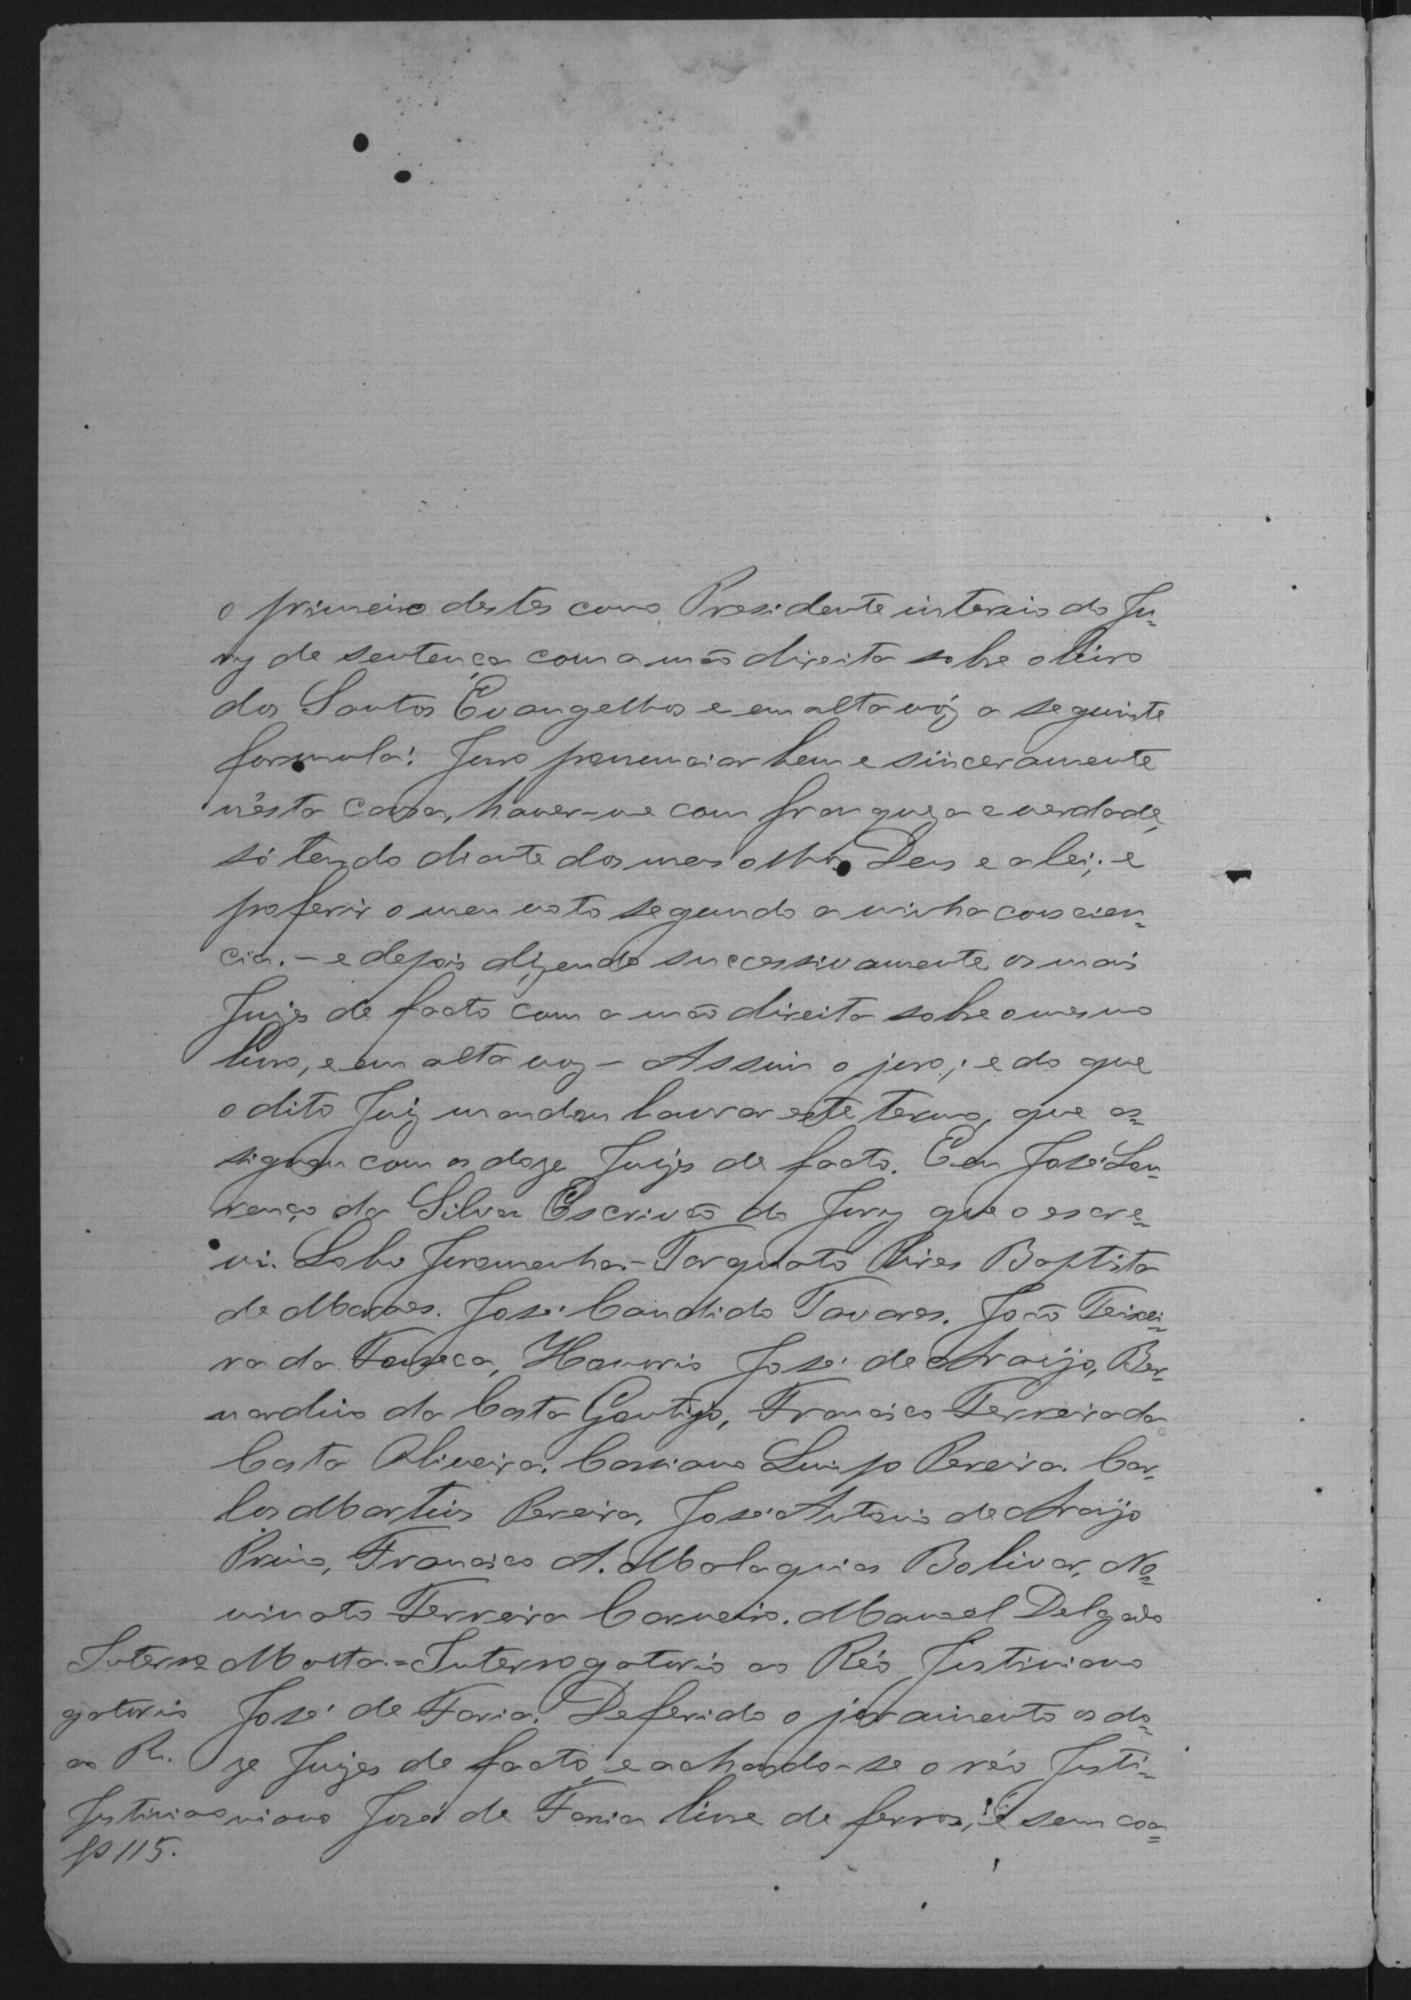 o primeiro destes como Presidente interino do Ju-
ry de sentença com a mão direita sobre o livro
dos Santos Evangelhos e em alta vóz a seguinte
formula: Juro pronunciar bem e sinceramente
n'esta causa, haver-me com franqueza e verdade,
só tendo diante dos meus olhos Deus e a lei; e
proferir o meu voto segundo a minha conscien-
cia. - e depois dizendo successivamente os mais
Juizes de facto com a mão direita sobre o mesmo
livro, e em alta voz - Assim o juro; e do que
o dito Juiz mandou lavrar este termo, que as-
signou com os doze Juizes de facto. E eu José Lou-
renço da Silva Escrivão do Jury que o escre-
vi. Lobo Juramenha. - Torquato Pires Baptista
de Moraes. José Candido Tavares. João Teixei-
ra da Fonseca, Honorio José de Araújo, Ber-
nardino da Costa Gontijo, Francisco Ferreira da
Costa Oliveira. Cassiano Luiz Pereira. Car-
los Martins Pereira, José Antonio de Araújo
Primo, Francisco A. Malaquias Bolivar, No-
minato Ferreira Carneiro. Manoel Delgado
Motta. = Interrogatorio ao Réo Justiniano
José de Faria. Deferido o juramento os do-
ze Juizes de facto, e achando-se o réo Justi-
niano José de Faria livre de ferros, e sem coa-
Interro-
gatorio
ao R.
Justiniano
fs 115.